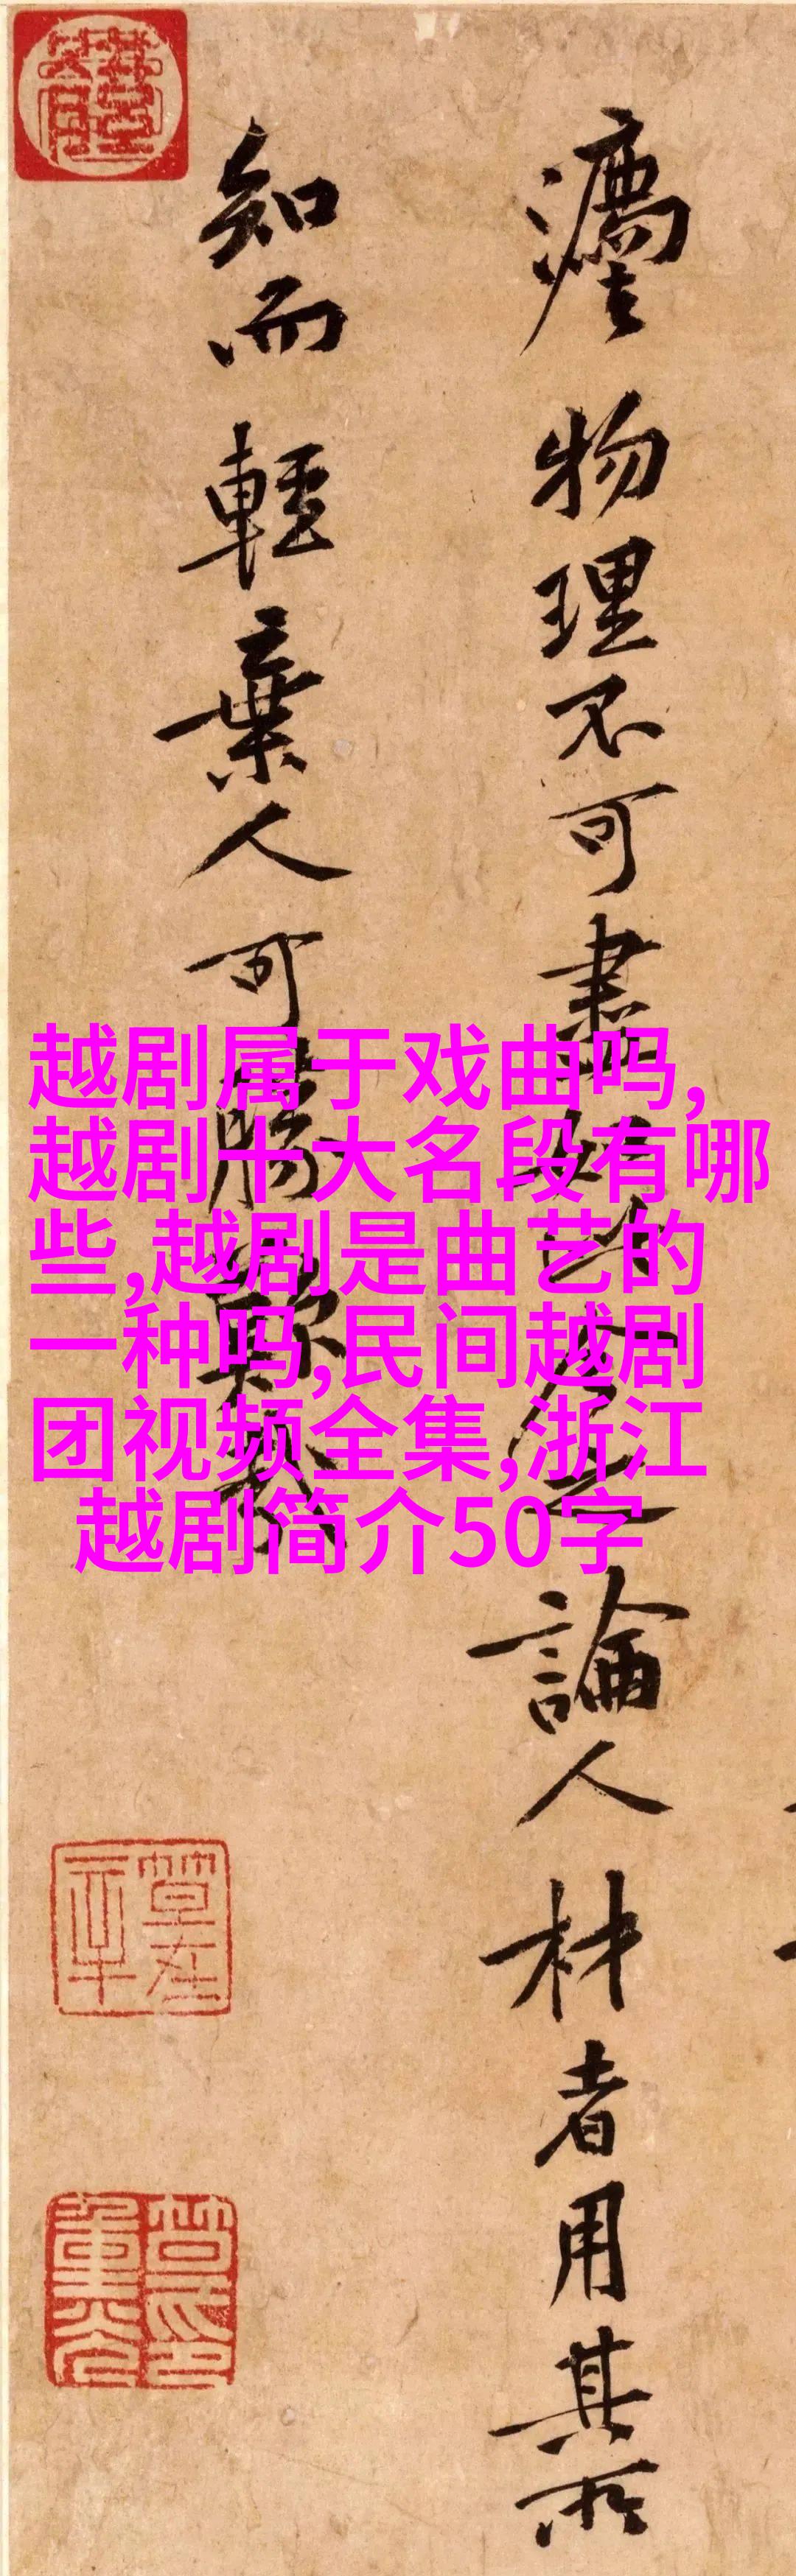 瀉物理不可盡如此念之論人材者用其所
知而輕棄人可勝歎哉
越剧属于戏曲吗,
越剧十大名段有哪
些,越剧是曲艺的
一种吗,民间越剧
团视频全集,浙江
越剧简介50字